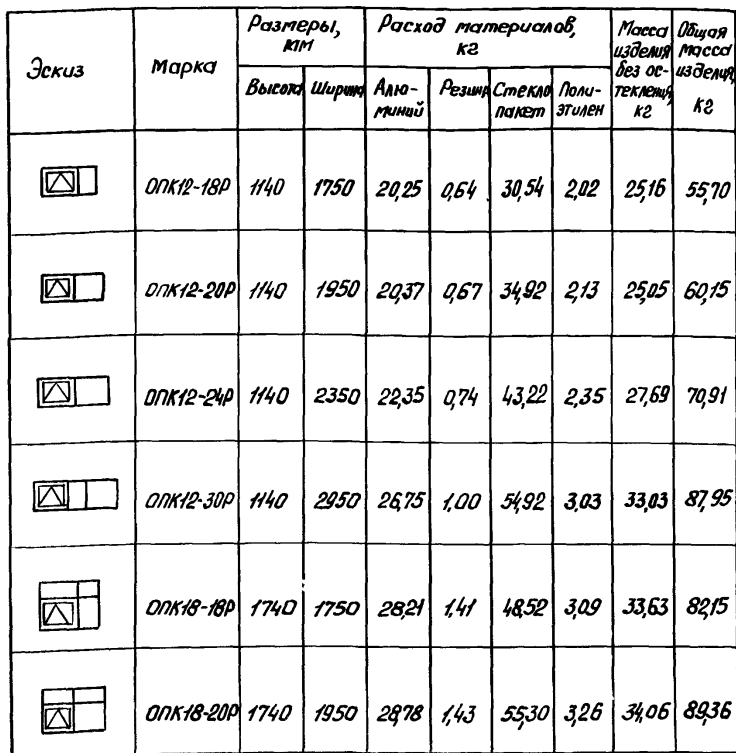 Эскиз
Марка
Размеры,
мм
Высота
Ширина
Расход материалов,
кг
Алю-
миний
Резина
Стекло
пакет
Поли-
этилен
Масса
изделия
без ос-
текления,
кг
Общая
масса
изделия,
кг
ОПК12-18Р 1140 1750 20,25 0,64 30,54 2,02 25,16 55,70
ОПК12-20Р 1140 1950 20,37 0,67 34,92 2,13 25,05 60,15
ОПК12-24Р 1140 2350 22,35 0,74 43,22 2,35 27,69 70,91
ОПК12-30Р 1140 2950 26,75 1,00 54,92 3,03 33,03 87,95
ОПК18-18Р 1740 1750 28,21 1,41 48,52 3,09 33,63 82,15
ОПК18-20Р 1740 1950 28,78 1,43 55,30 3,26 34,06 89,36